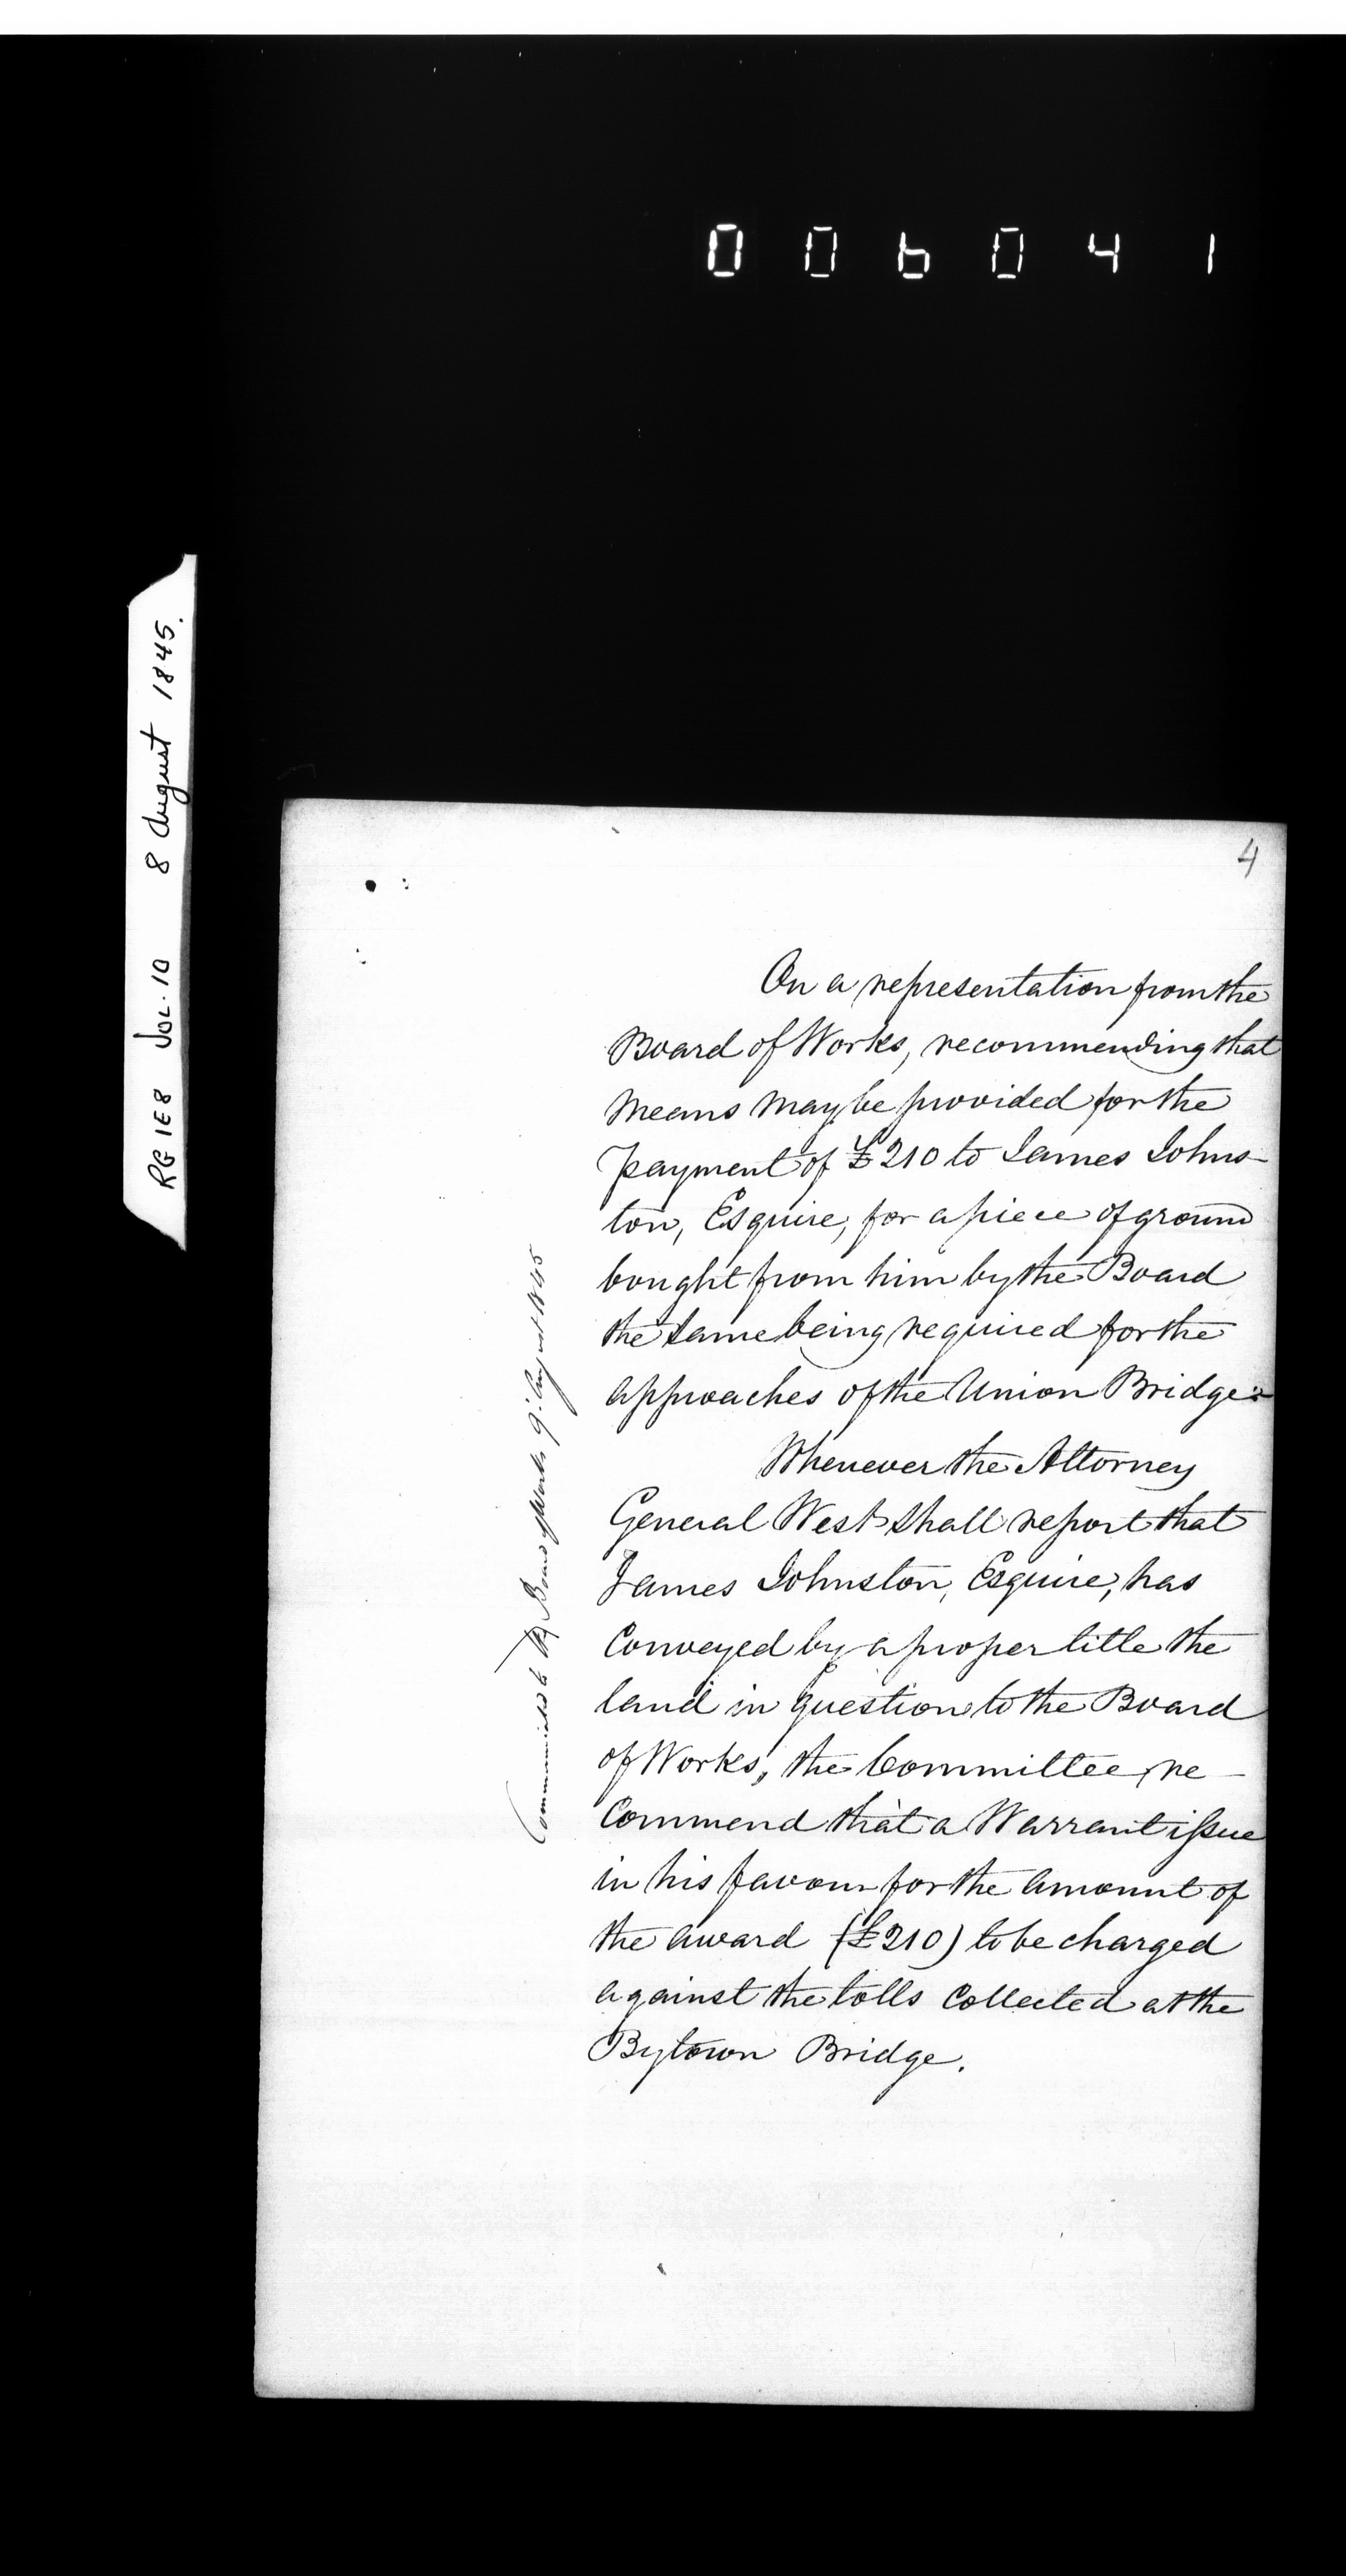 006041
RG 1E8 Vol. 10 8 August 1845.
4
On a representation from the
Board of Works, recommending that
means may be provided for the
payment of £210 to James Johns-
ton, Esquire, for a piece of ground
bought from him by the Board
the same being required for the
approaches of the Union Bridge:-
Whenever the Attorney
General West shall report that
James Johnston, Esquire, has
conveyed by a proper title the
land in question to the Board
of Works, the Committee re-
commend that a Warrant issue
in his favour for the amount of
the award (£210) to be charged
against the tolls collected at the
Bytown Bridge.
Board of Works 9. August 1845